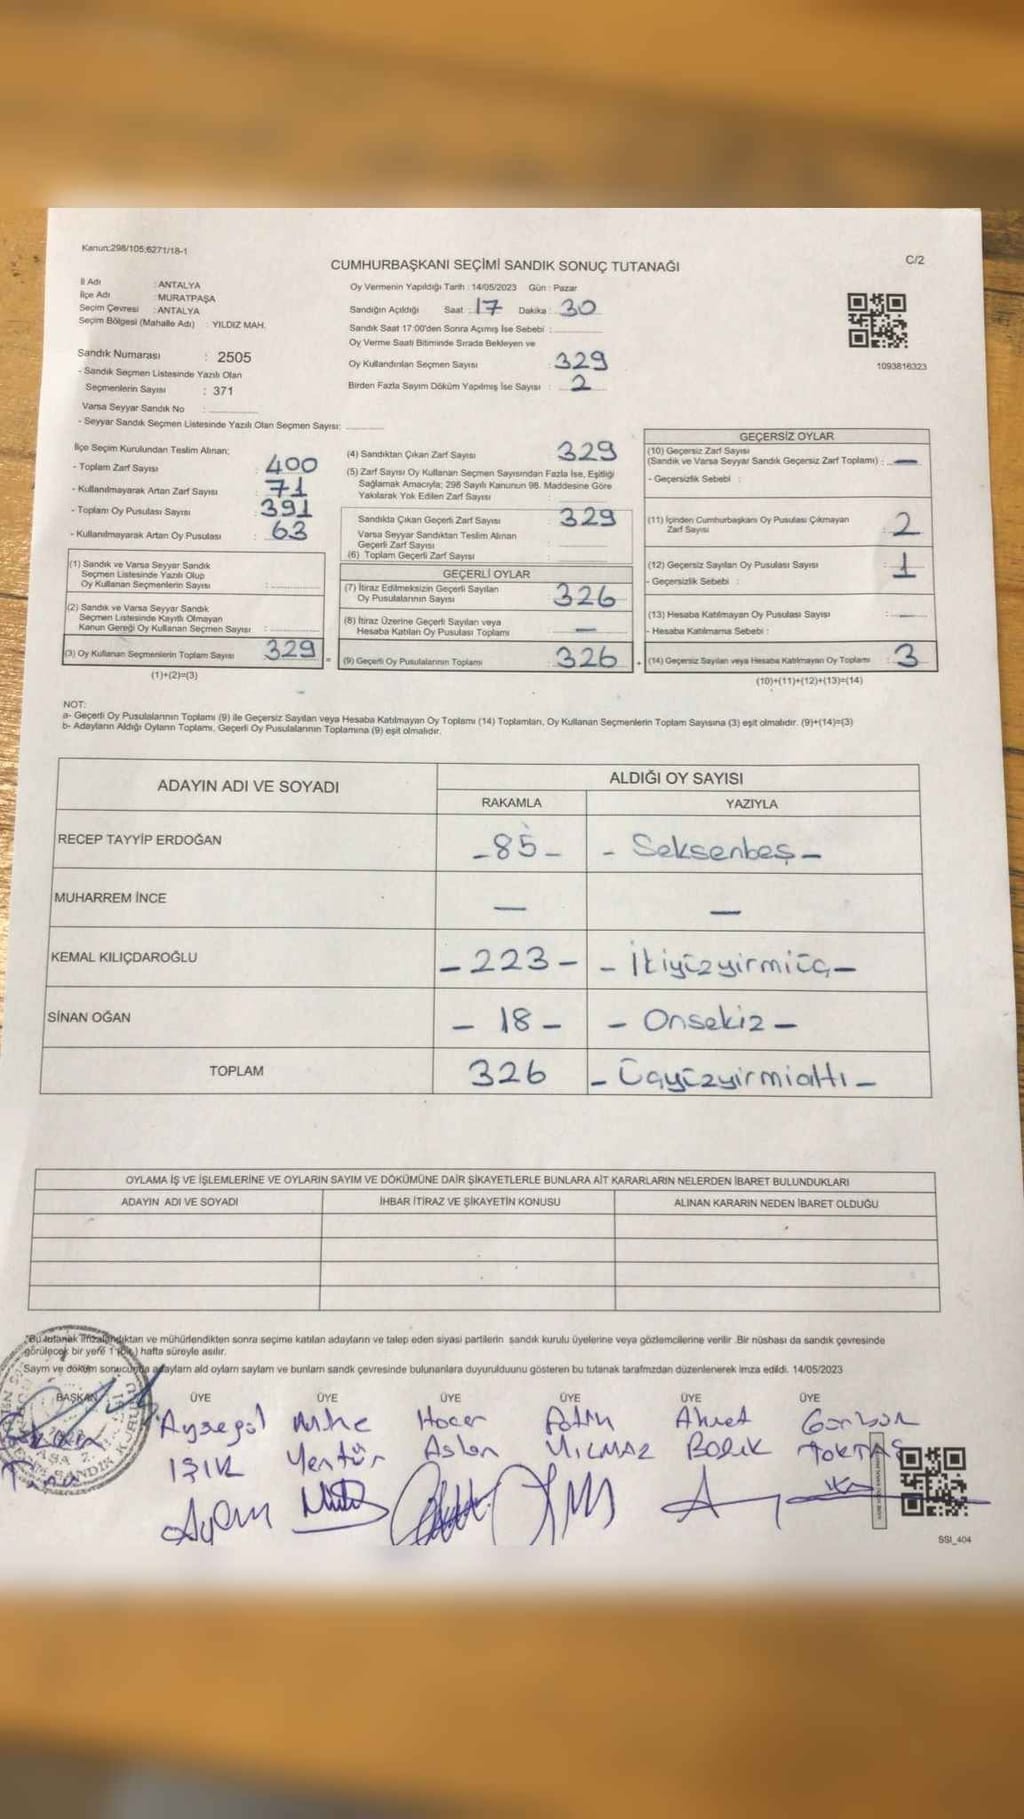 Kanun:298/105;6271/18-1
C/2
CUMHURBAŞKANI SEÇİMİ SANDIK SONUÇ TUTANAĞI
İl Adı : ANTALYA
İlçe Adı : MURATPAŞA
Seçim Çevresi : ANTALYA
Seçim Bölgesi (Mahalle Adı) : YILDIZ MAH.
Sandık Numarası : 2505
- Sandık Seçmen Listesinde Yazılı Olan
Seçmenlerin Sayısı : 371
Varsa Seyyar Sandık No :
- Seyyar Sandık Seçmen Listesinde Yazılı Olan Seçmen Sayısı:
Oy Vermenin Yapıldığı Tarih : 14/05/2023 Gün : Pazar
Sandığın Açıldığı Saat : 17 Dakika : 30
Sandık Saat 17:00'den Sonra Açmış İse Sebebi :
Oy Verme Saati Bitiminde Sırada Bekleyen ve
Oy Kullandırılan Seçmen Sayısı : 329
Birden Fazla Sayım Döküm Yapılmış İse Sayısı : 2
1093816323
İlçe Seçim Kurulundan Teslim Alınan;
- Toplam Zarf Sayısı : 400
- Kullanılmayarak Artan Zarf Sayısı : 71
- Toplam Oy Pusulası Sayısı : 391
- Kullanılmayarak Artan Oy Pusulası : 63
(1) Sandık ve Varsa Seyyar Sandık
Seçmen Listesinde Yazılı Olup
Oy Kullanan Seçmenlerin Sayısı :
(2) Sandık ve Varsa Seyyar Sandık
Seçmen Listesinde Kayıtlı Olmayan
Kanun Gereği Oy Kullanan Seçmen Sayısı :
(3) Oy Kullanan Seçmenlerin Toplam Sayısı : 329
(1)+(2)=(3)
(4) Sandıktan Çıkan Zarf Sayısı : 329
(5) Zarf Sayısı Oy Kullanan Seçmen Sayısından Fazla İse, Eşitliği
Sağlamak Amacıyla; 298 Sayılı Kanunun 98. Maddesine Göre
Yakılarak Yok Edilen Zarf Sayısı :
Sandıkta Çıkan Geçerli Zarf Sayısı : 329
Varsa Seyyar Sandıktan Teslim Alınan
Geçerli Zarf Sayısı :
(6) Toplam Geçerli Zarf Sayısı :
GEÇERLİ OYLAR
(7) İtiraz Edilmeksizin Geçerli Sayılan
Oy Pusulalarının Sayısı : 326
(8) İtiraz Üzerine Geçerli Sayılan veya
Hesaba Katılan Oy Pusulası Toplamı : —
(9) Geçerli Oy Pusulalarının Toplamı : 326
GEÇERSİZ OYLAR
(10) Geçersiz Zarf Sayısı
(Sandık ve Varsa Seyyar Sandık Geçersiz Zarf Toplamı) : —
- Geçersizlik Sebebi :
(11) İçinden Cumhurbaşkanı Oy Pusulası Çıkmayan
Zarf Sayısı : 2
(12) Geçersiz Sayılan Oy Pusulası Sayısı : 1
- Geçersizlik Sebebi :
(13) Hesaba Katılmayan Oy Pusulası Sayısı : —
- Hesaba Katılmama Sebebi :
(14) Geçersiz Sayılan veya Hesaba Katılmayan Oy Toplamı : 3
(10)+(11)+(12)+(13)=(14)
NOT:
a- Geçerli Oy Pusulalarının Toplamı (9) ile Geçersiz Sayılan veya Hesaba Katılmayan Oy Toplamı (14) Toplamları, Oy Kullanan Seçmenlerin Toplam Sayısına (3) eşit olmalıdır. (9)+(14)=(3)
b- Adayların Aldığı Oyların Toplamı, Geçerli Oy Pusulalarının Toplamına (9) eşit olmalıdır.
ADAYIN ADI VE SOYADI ALDIĞI OY SAYISI
RAKAMLA YAZIYLA
RECEP TAYYİP ERDOĞAN -85- - Seksenbeş -
MUHARREM İNCE — —
KEMAL KILIÇDAROĞLU -223- - İkiyüzyirmiüç -
SİNAN OĞAN - 18 - - Onsekiz -
TOPLAM 326 - Üçyüzyirmialtı -
OYLAMA İŞ VE İŞLEMLERİNE VE OYLARIN SAYIM VE DÖKÜMÜNE DAİR ŞİKAYETLERLE BUNLARA AİT KARARLARIN NELERDEN İBARET BULUNDUKLARI
ADAYIN ADI VE SOYADI İHBAR İTİRAZ VE ŞİKAYETİN KONUSU ALINAN KARARIN NEDEN İBARET OLDUĞU
*Bu tutanak imzalandıktan ve mühürlendikten sonra seçime katılan adayların ve talep eden siyasi partilerin sandık kurulu üyelerine veya gözlemcilerine verilir .Bir nüshası da sandık çevresinde
görülecek bir yere 1 (bir) hafta süreyle asılır.
Sayım ve döküm sonucunda adayların ald oyların saylam ve bunlam sandk çevresinde bulunanlara duyurulduunu gösteren bu tutanak tarafmzdan düzenlenerek imza edildi. 14/05/2023
BAŞKAN ÜYE ÜYE ÜYE ÜYE ÜYE ÜYE
Ayşegül Hacer Fatih Ahmet
IŞIK Yentür Aslan YILMAZ TOKTAŞ
SSI_404